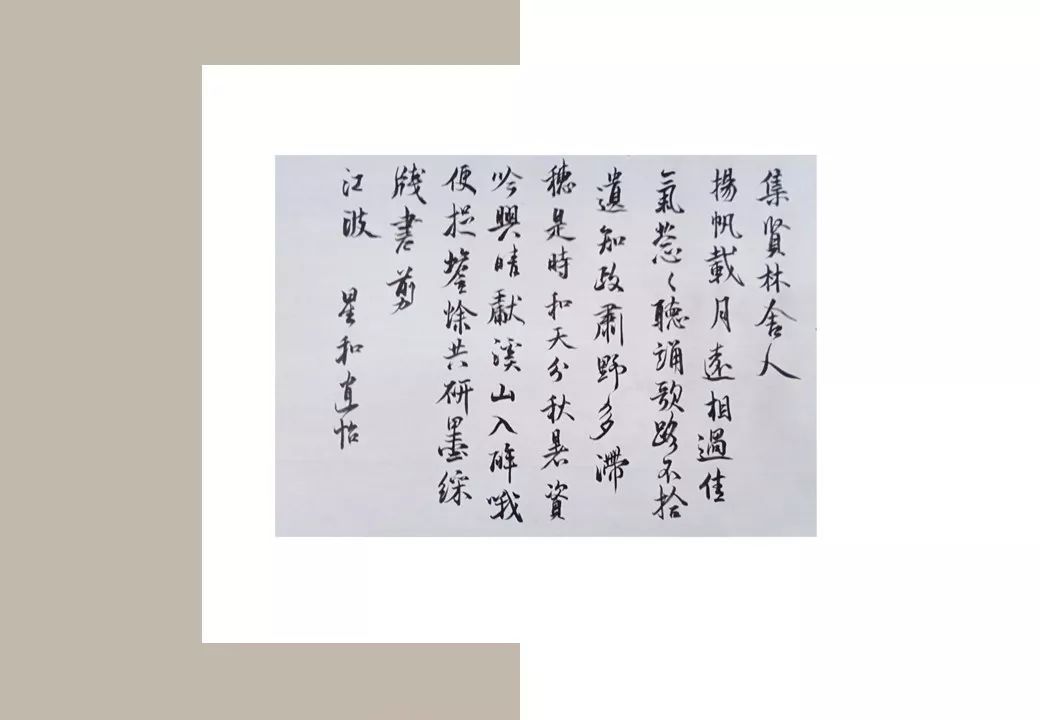 集賢林舍人
揚帆載月遠相過佳
氣蔥々聽誦歌路不拾
遺知政肅野多滯
穗是時和天分秋暑資
吟興晴獻溪山入醉哦
便捉蟾蜍共研墨綵
牋書剪
江波 星和直怡